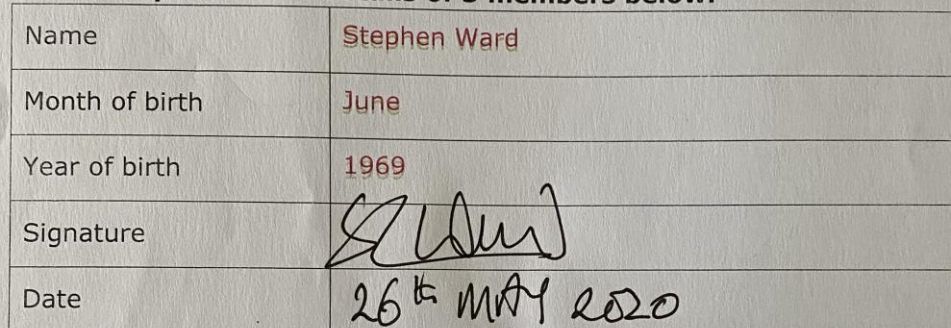 of 3 members below:
Name Stephen Ward
Month of birth June
Year of birth 1969
Signature
Date 26th MAY 2020